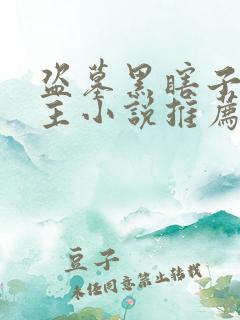 盗墓黑瞎子
主小说推薦
豆子
未经同意禁止转载